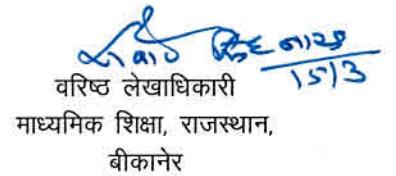 15/3
वरिष्ठ लेखाधिकारी
माध्यमिक शिक्षा, राजस्थान,
बीकानेर